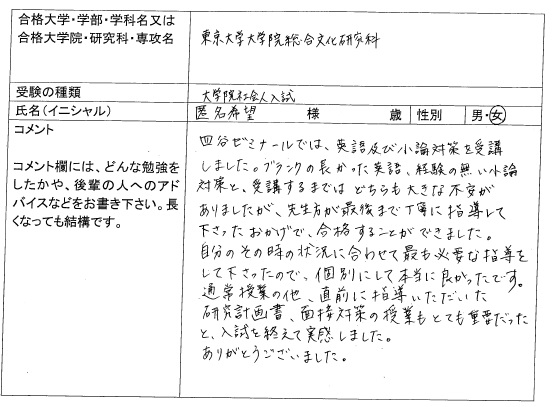 合格大学・学部・学科名又は
合格大学院・研究科・専攻名
東京大学大学院総合文化研究科
受験の種類
大学院社会人入試
氏名(イニシャル)
匿名希望 様 歳 性別 男・女
コメント
コメント欄には、どんな勉強を
したかや、後輩の人へのアド
バイスなどをお書き下さい。長
くなっても結構です。
四谷ゼミナールでは、英語及び小論対策を受講
しました。ブランクの長かった英語、経験の無い小論
対策と、受講するまではどちらも大きな不安が
ありましたが、先生方が最後まで丁寧に指導して
下さったおかげで、合格することができました。
自分のその時の状況に合わせて最も必要な指導を
して下さったので、個別にして本当に良かったです。
通常授業の他、直前に指導いただいた
研究計画書、面接対策の授業もとても重要だった
と、入試を終えて実感しました。
ありがとうございました。